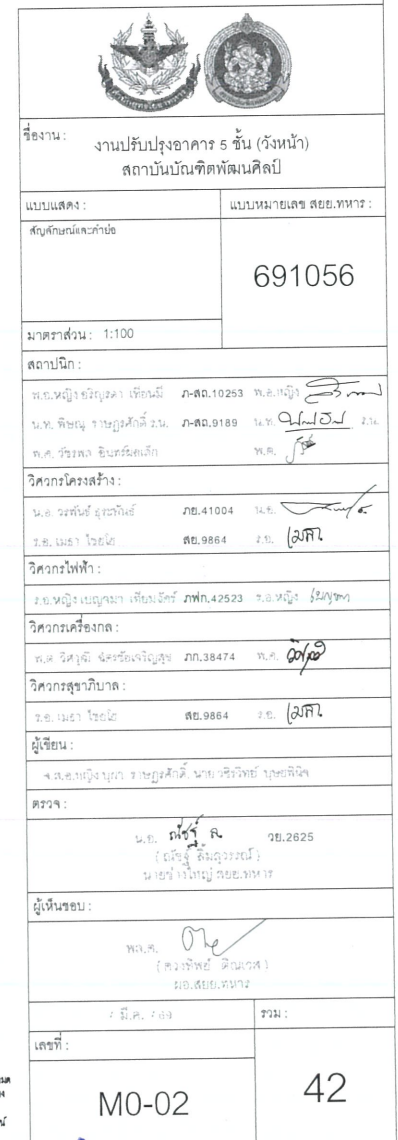 ชื่องาน :
งานปรับปรุงอาคาร 5 ชั้น (วังหน้า)
สถาบันบัณฑิตพัฒนศิลป์
แบบแสดง :
แบบหมายเลข สยย.ทหาร :
สัญลักษณ์และคำย่อ
691056
มาตราส่วน : 1:100
สถาปนิก :
พ.อ.หญิง ภ-สถ.10253 พ.อ.หญิง
น.ท. พิษณุ ราษฎรศักดิ์ ร.น. ภ-สถ.9189 น.ท. ร.น.
พ.ต. วัชรพล พ.ต.
วิศวกรโครงสร้าง :
น.อ. วรพันธ์ ภย.41004 น.อ.
ร.อ. เมธา ไชยโย สย.9864 ร.อ. เมธา
วิศวกรไฟฟ้า :
ร.อ.หญิง เบญจมา เทียมฉัตร์ ภฟก.42523 ร.อ.หญิง เบญจมา
วิศวกรเครื่องกล :
พ.ต. ภก.38474 พ.ต.
วิศวกรสุขาภิบาล :
ร.อ. เมธา ไชยโย สย.9864 ร.อ. เมธา
ผู้เขียน :
จ.ส.อ.หญิง บุผา ราษฎรศักดิ์, นาย วชิรวิทย์
ตรวจ :
น.อ. ณัชฐ์ วย.2625
นายช่างใหญ่ สยย.ทหาร
ผู้เห็นชอบ :
พล.ต.
ผอ.สยย.ทหาร
มี.ค.
รวม :
เลขที่ :
M0-02
42